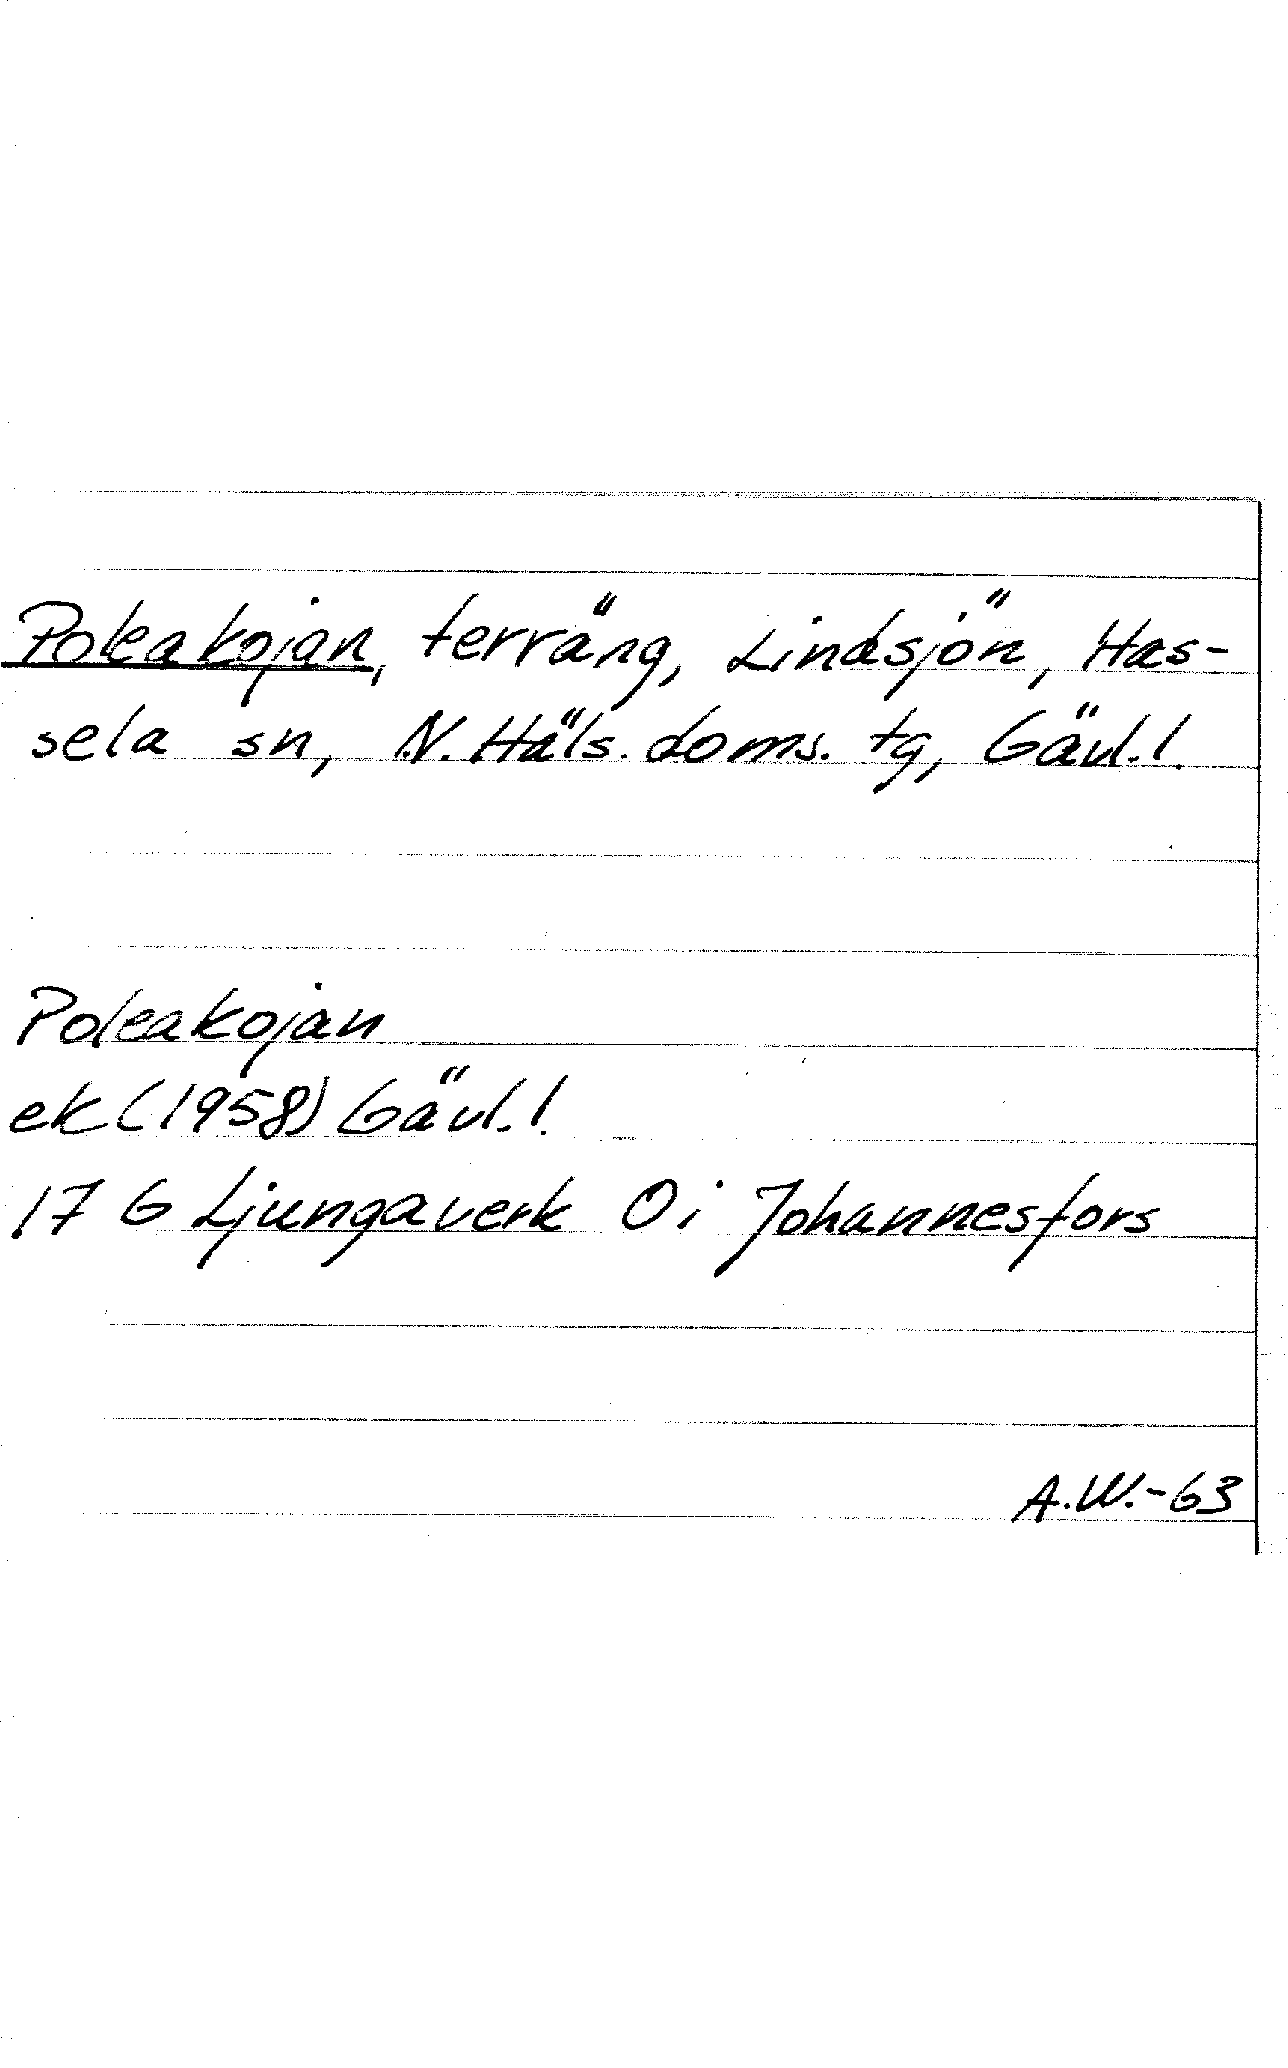 Poleakojan, terräng, Lindsjön, Has-
sela sn, N. Häls. doms. tg, Gävl. l.
Poleakojan
ek (1958) Gävl. l.
17 G Ljungaverk 0 i Johannesfors
A.W.-63